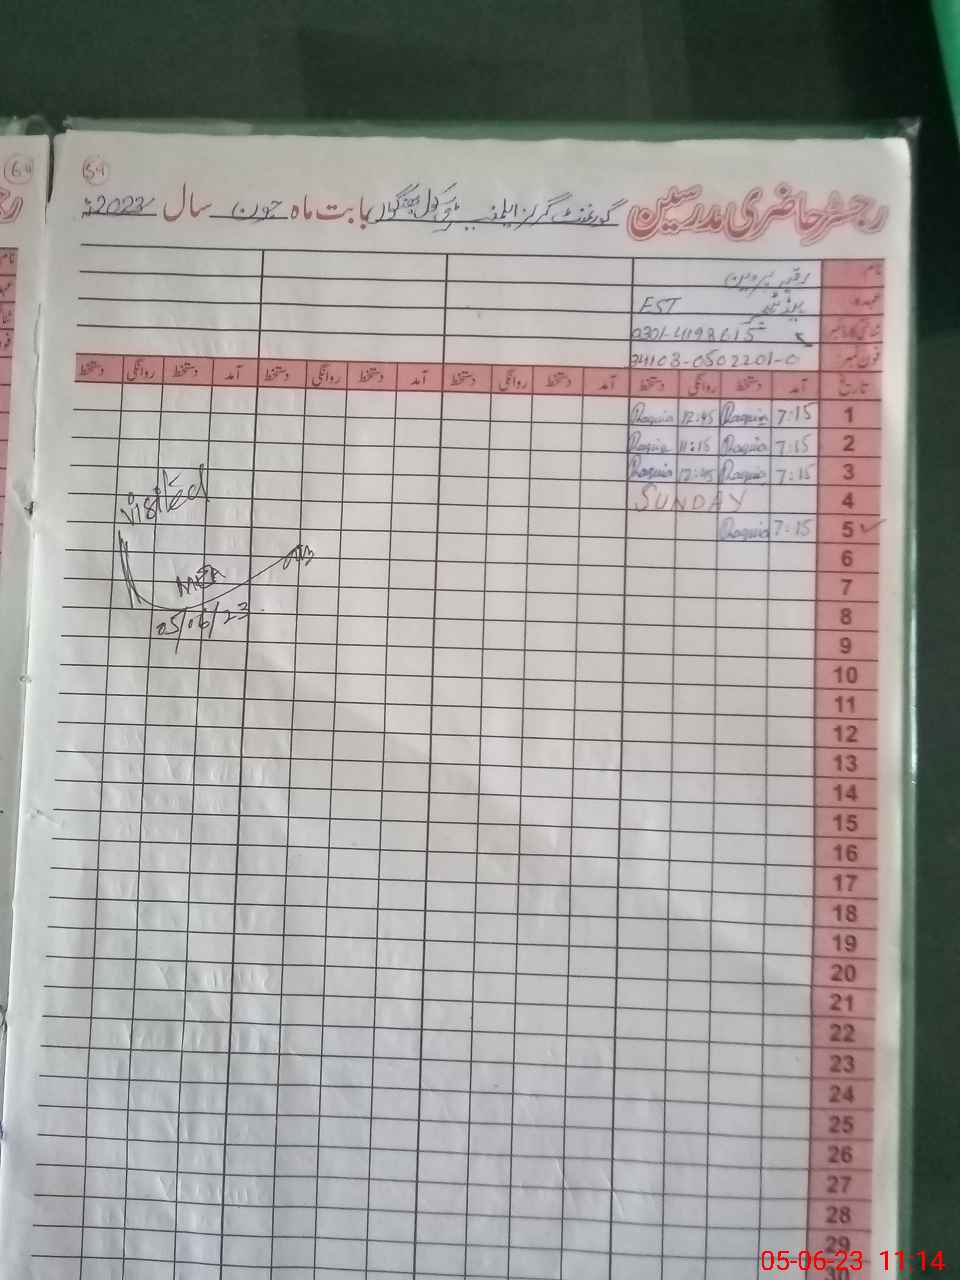 64
54
رجسٹر حاضری مدرسین گورنمنٹ گرلز ایلیمنٹری سکول بابت ماہ جون سال 2023ء
نام
عہدہ ہیڈ ٹیچر EST
شناختی کارڈ نمبر
فون نمبر 34103-0502201-0
تاریخ آمد دستخط روانگی دستخط آمد دستخط روانگی دستخط آمد دستخط روانگی دستخط آمد دستخط روانگی دستخط
1 7:15 Ruquia 12:45 Ruquia
2 7:15 Ruquia 11:15 Ruquia
3 7:15 Ruquia 12:45 Ruquia
4 SUNDAY
5 7:15 Ruquia
6
7
8
9
10
11
12
13
14
15
16
17
18
19
20
21
22
23
24
25
26
27
28
29
30
Visited
MEA
05/06/23
05-06-23 11:14